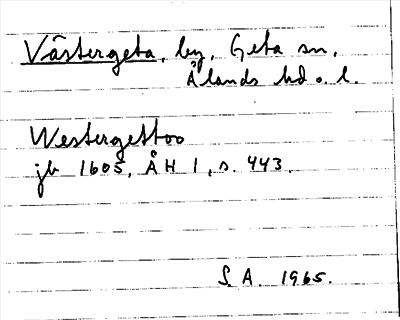 Västergeta, by, Geta sn,
Ålands hd o. l.
Westergettoo
jb 1605, ÅH 1, s. 443.
S.A. 1965.